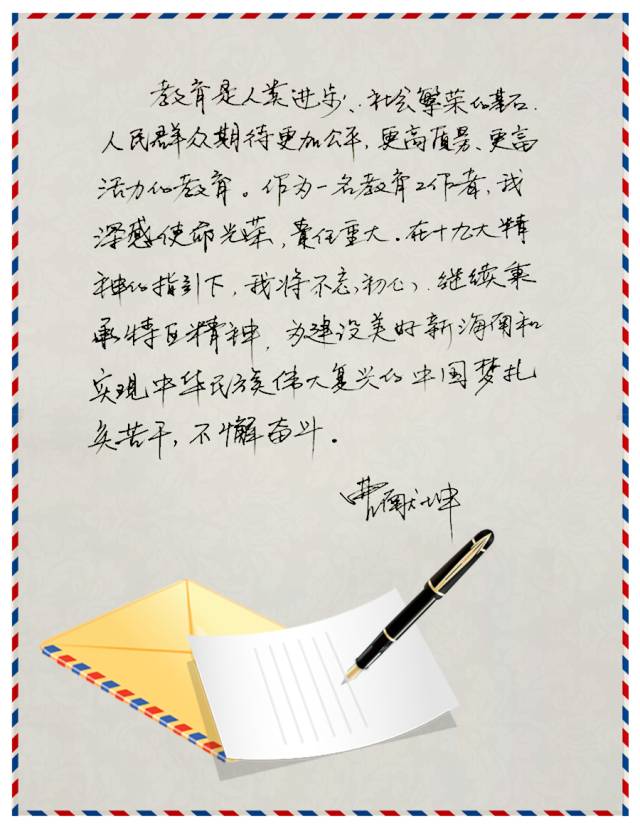 教育是人类进步、社会繁荣的基石.
人民群众期待更加公平,更高质量、更富
活力的教育。作为一名教育工作者,我
深感使命光荣,责任重大.在十九大精
神的指引下,我将不忘初心,继续秉
承特区精神,为建设美好新海南和
实现中华民族伟大复兴的中国梦扎
实苦干,不懈奋斗。